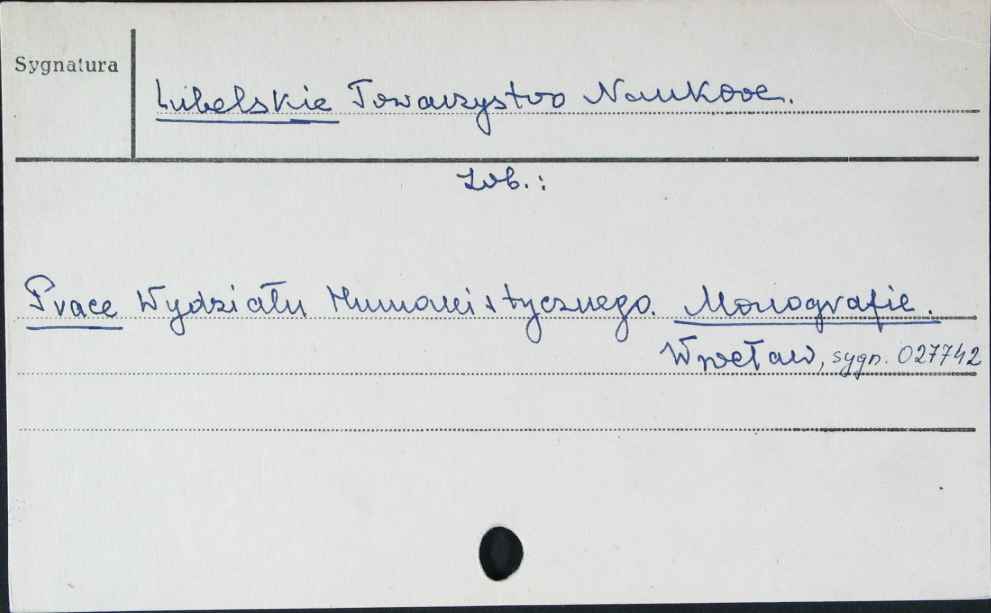 Sygnatura
Lubelskie Towarzystwo Naukowe.
Zob.:
Prace Wydziału Humanistycznego. Monografie.
Wrocław, sygn. 027742